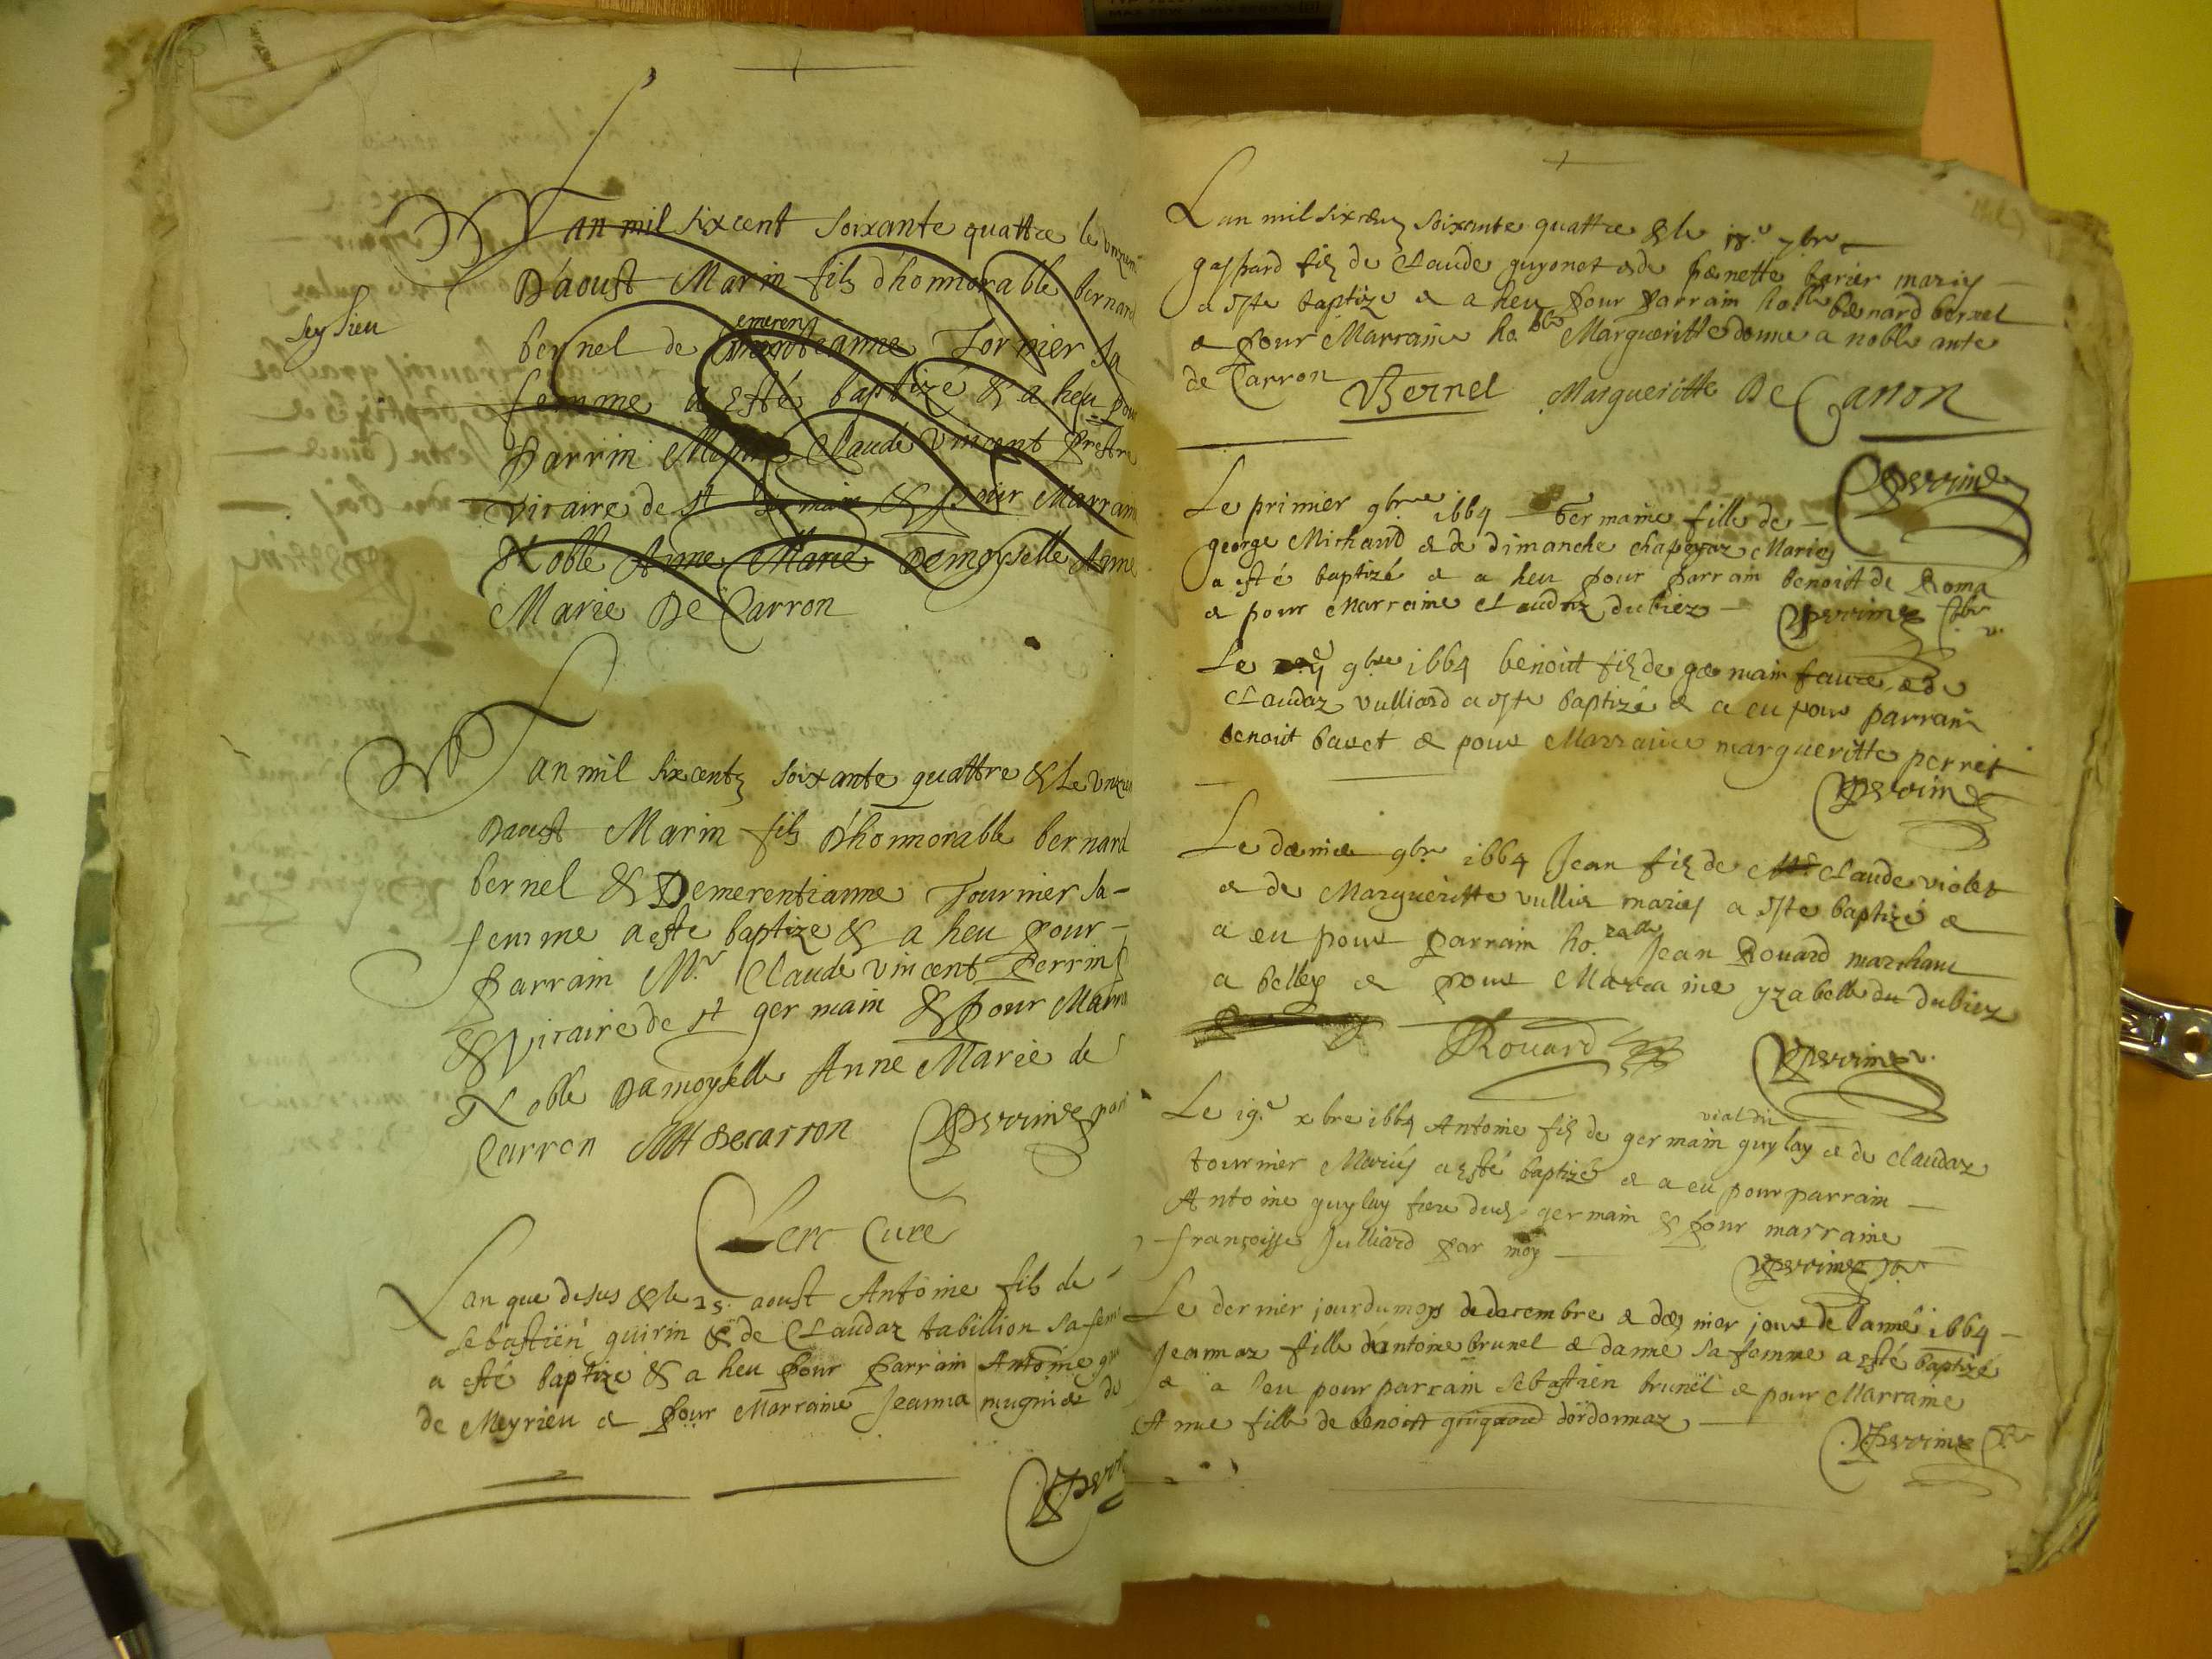 Lan mil sixcent soixante quattre le unzie
Daoust Marin fils dhonnorable bernard
seylieu
emeren
bernel de tianne Tornier sa
femme a esté baptizé & a heu pour
Parrin Claude vincent prestre
vicaire de st germain & pour Marrain
Noble Anne Marie Demoyselle Anne
Marie De Carron
Lan mil sixcentz soixante quattre & Le unzie
Daoust Marin fils D'honnorable bernard
bernel & Demerentianne Tournier sa-
femme a este baptize & a heu pour-
parrain Mr. Claude vincent Perrin
& Vicaire de st germain & pour Marra
Noble Damoyselle Anne Marie de
Carron AM decarron Perrin
Lerc Curé
Lan que desus & le 25. aoust Antoine fils de -
sebastien guirin & de Claudaz tabillion sa fem
a esté baptize & a heu pour parrain Antoine
de Meyrieu & pour Marraine Jeanna mugnier de
Perri
Lan mil sixcentz soixante quattre & le 18.e 7bre
gaspard filz de Claude guyonet & de pernette barier mariez
a este baptize & a heu pour parrain ho.ble bernard bernel
& pour Marraine ho.ble Margueritte donne a noble ante
de Carron Bernel Margueritte De Carron
Perrin
Le primier 9bre 1664 Germaine fille de
george Michaud & de dimanche chapeyaz Mariez
a esté baptizé & a heu pour parrain benoict de Roma
& pour Marraine Claudaz dubiez Perrin
Le 9bre 1664 benoict filz de germain faure & de
Claudaz vulliard a este baptizé & a eu pour parrain
benoict bavet & pour Marraine margueritte perret
Perrin
Le dernier 9bre 1664 Jean filz de Claude violet
& de Margueritte vullie mariez a este baptizé &
a eu pour parrain ho.rable Jean Rouard marchant
a belley & pour Marraine yzabelle du dubiez
Rouard Perrin
vialdin
Le 19.e xbre 1664 Antoine filz de germain guy lay & de claudaz
tournier Mariés a esté baptizé & a eu pour parrain
Antoine guy lay frere dud germain & pour marraine
françoisse Julliard par moy
Perrin
Le dernier jour du moys de decembre & dernier jour de lanné 1664
Jeannaz fille dantoine brunel & danne sa femme a esté baptizé
& a heu pour parrain sebastien brunel & pour Marraine
Anne fille de benoict guigard dordonnaz
Perrin